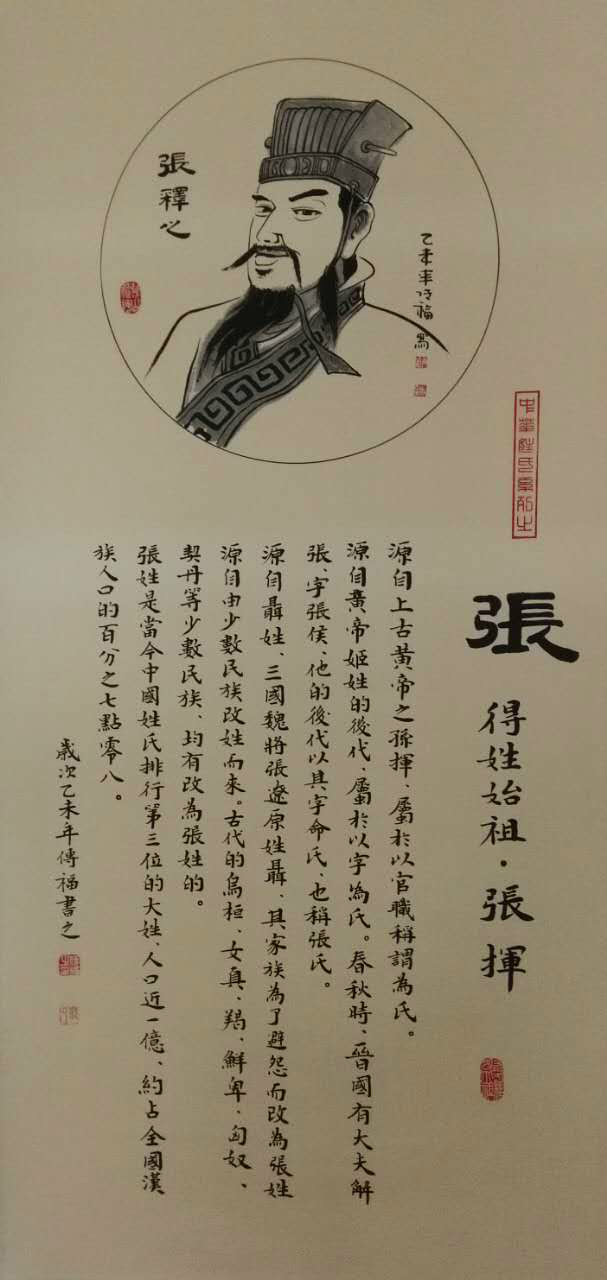 張釋之
乙未年傳福
中華姓氏系列之
張
得姓始祖·張揮
源自上古黃帝之孫揮、屬於以官職稱謂為氏。
源自黃帝姬姓的後代、屬於以字為氏。春秋時、晉國有大夫解
張、字張侯、他的後代以其字命氏、也稱張氏。
源自聶姓、三國魏將張遼原姓聶、其家族為了避怨而改為張姓
源自由少數民族改姓而來。古代的烏桓、女真、羯、鮮卑、匈奴、
契丹等少數民族、均有改為張姓的。
張姓是當今中國姓氏排行第三位的大姓、人口近一億、約占全國漢
族人口的百分之七點零八。
歲次乙未年傳福書之